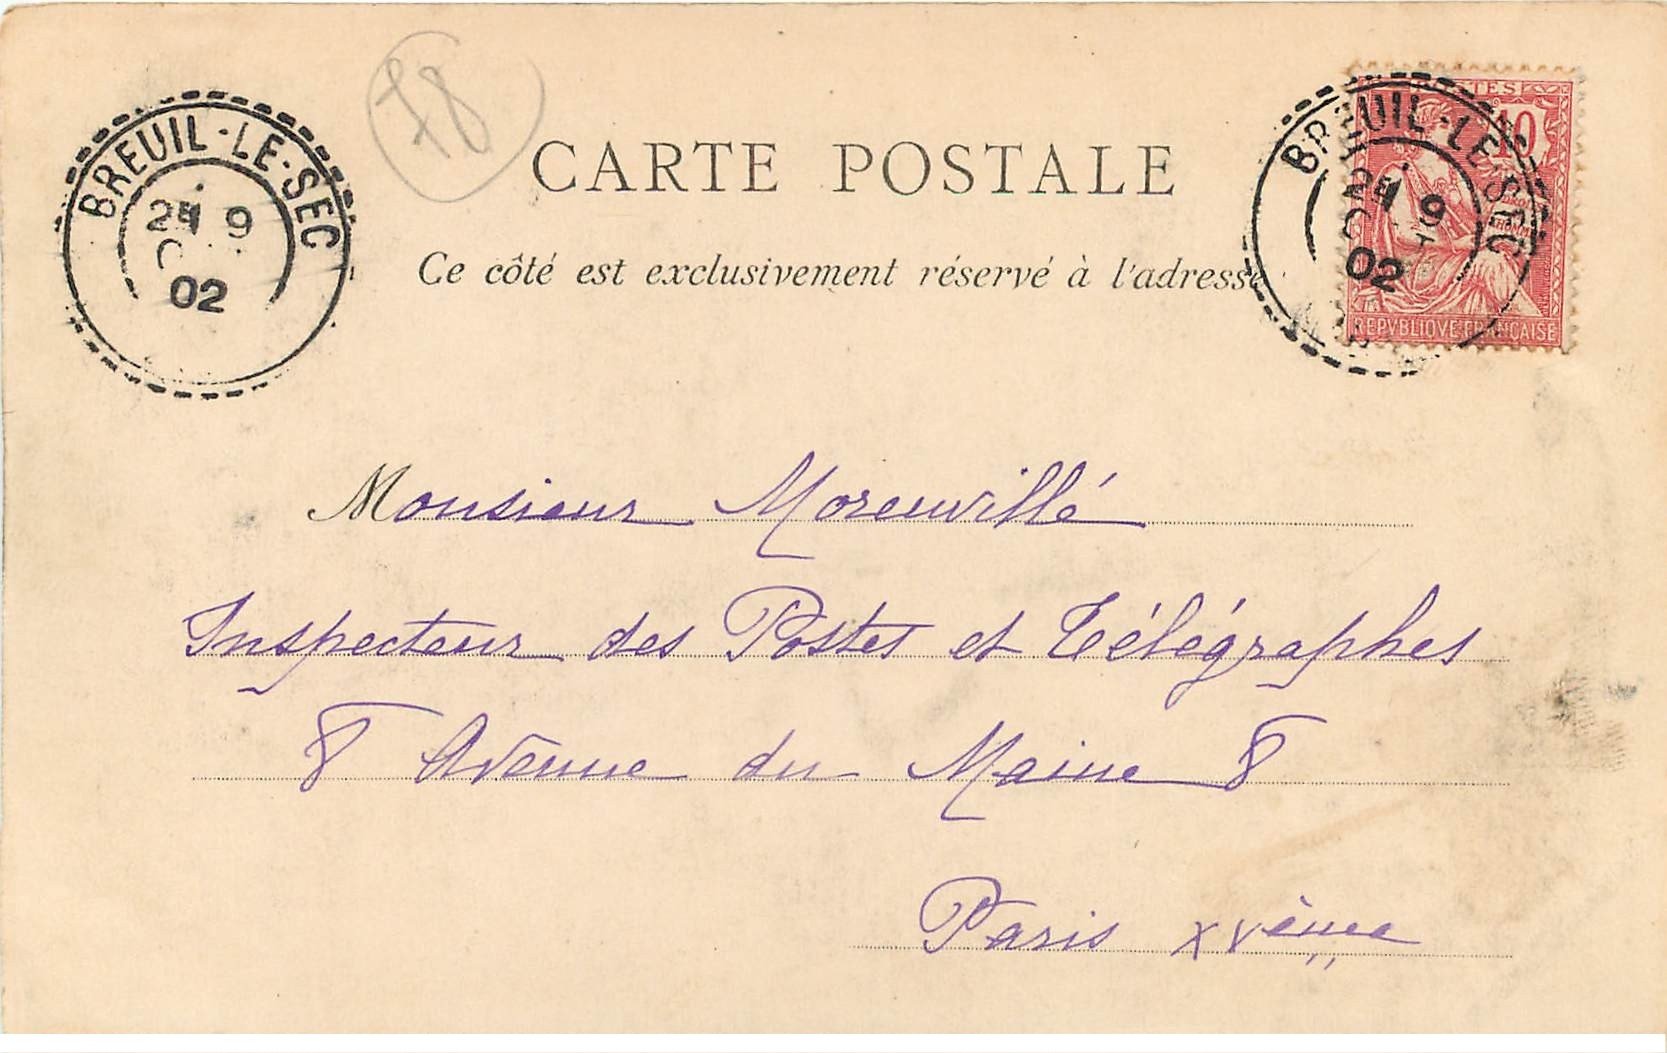 78
CARTE POSTALE
Ce côté est exclusivement réservé à l'adresse
BREUIL-LE-SEC
9
02
POSTES
10
BREUIL-LE-SEC
9
02
REPVBLIQVE FRANÇAISE
Monsieur Moreuvillé
Inspecteur des Postes et Télégraphes
8 Avenue du Maine 8
Paris XVème